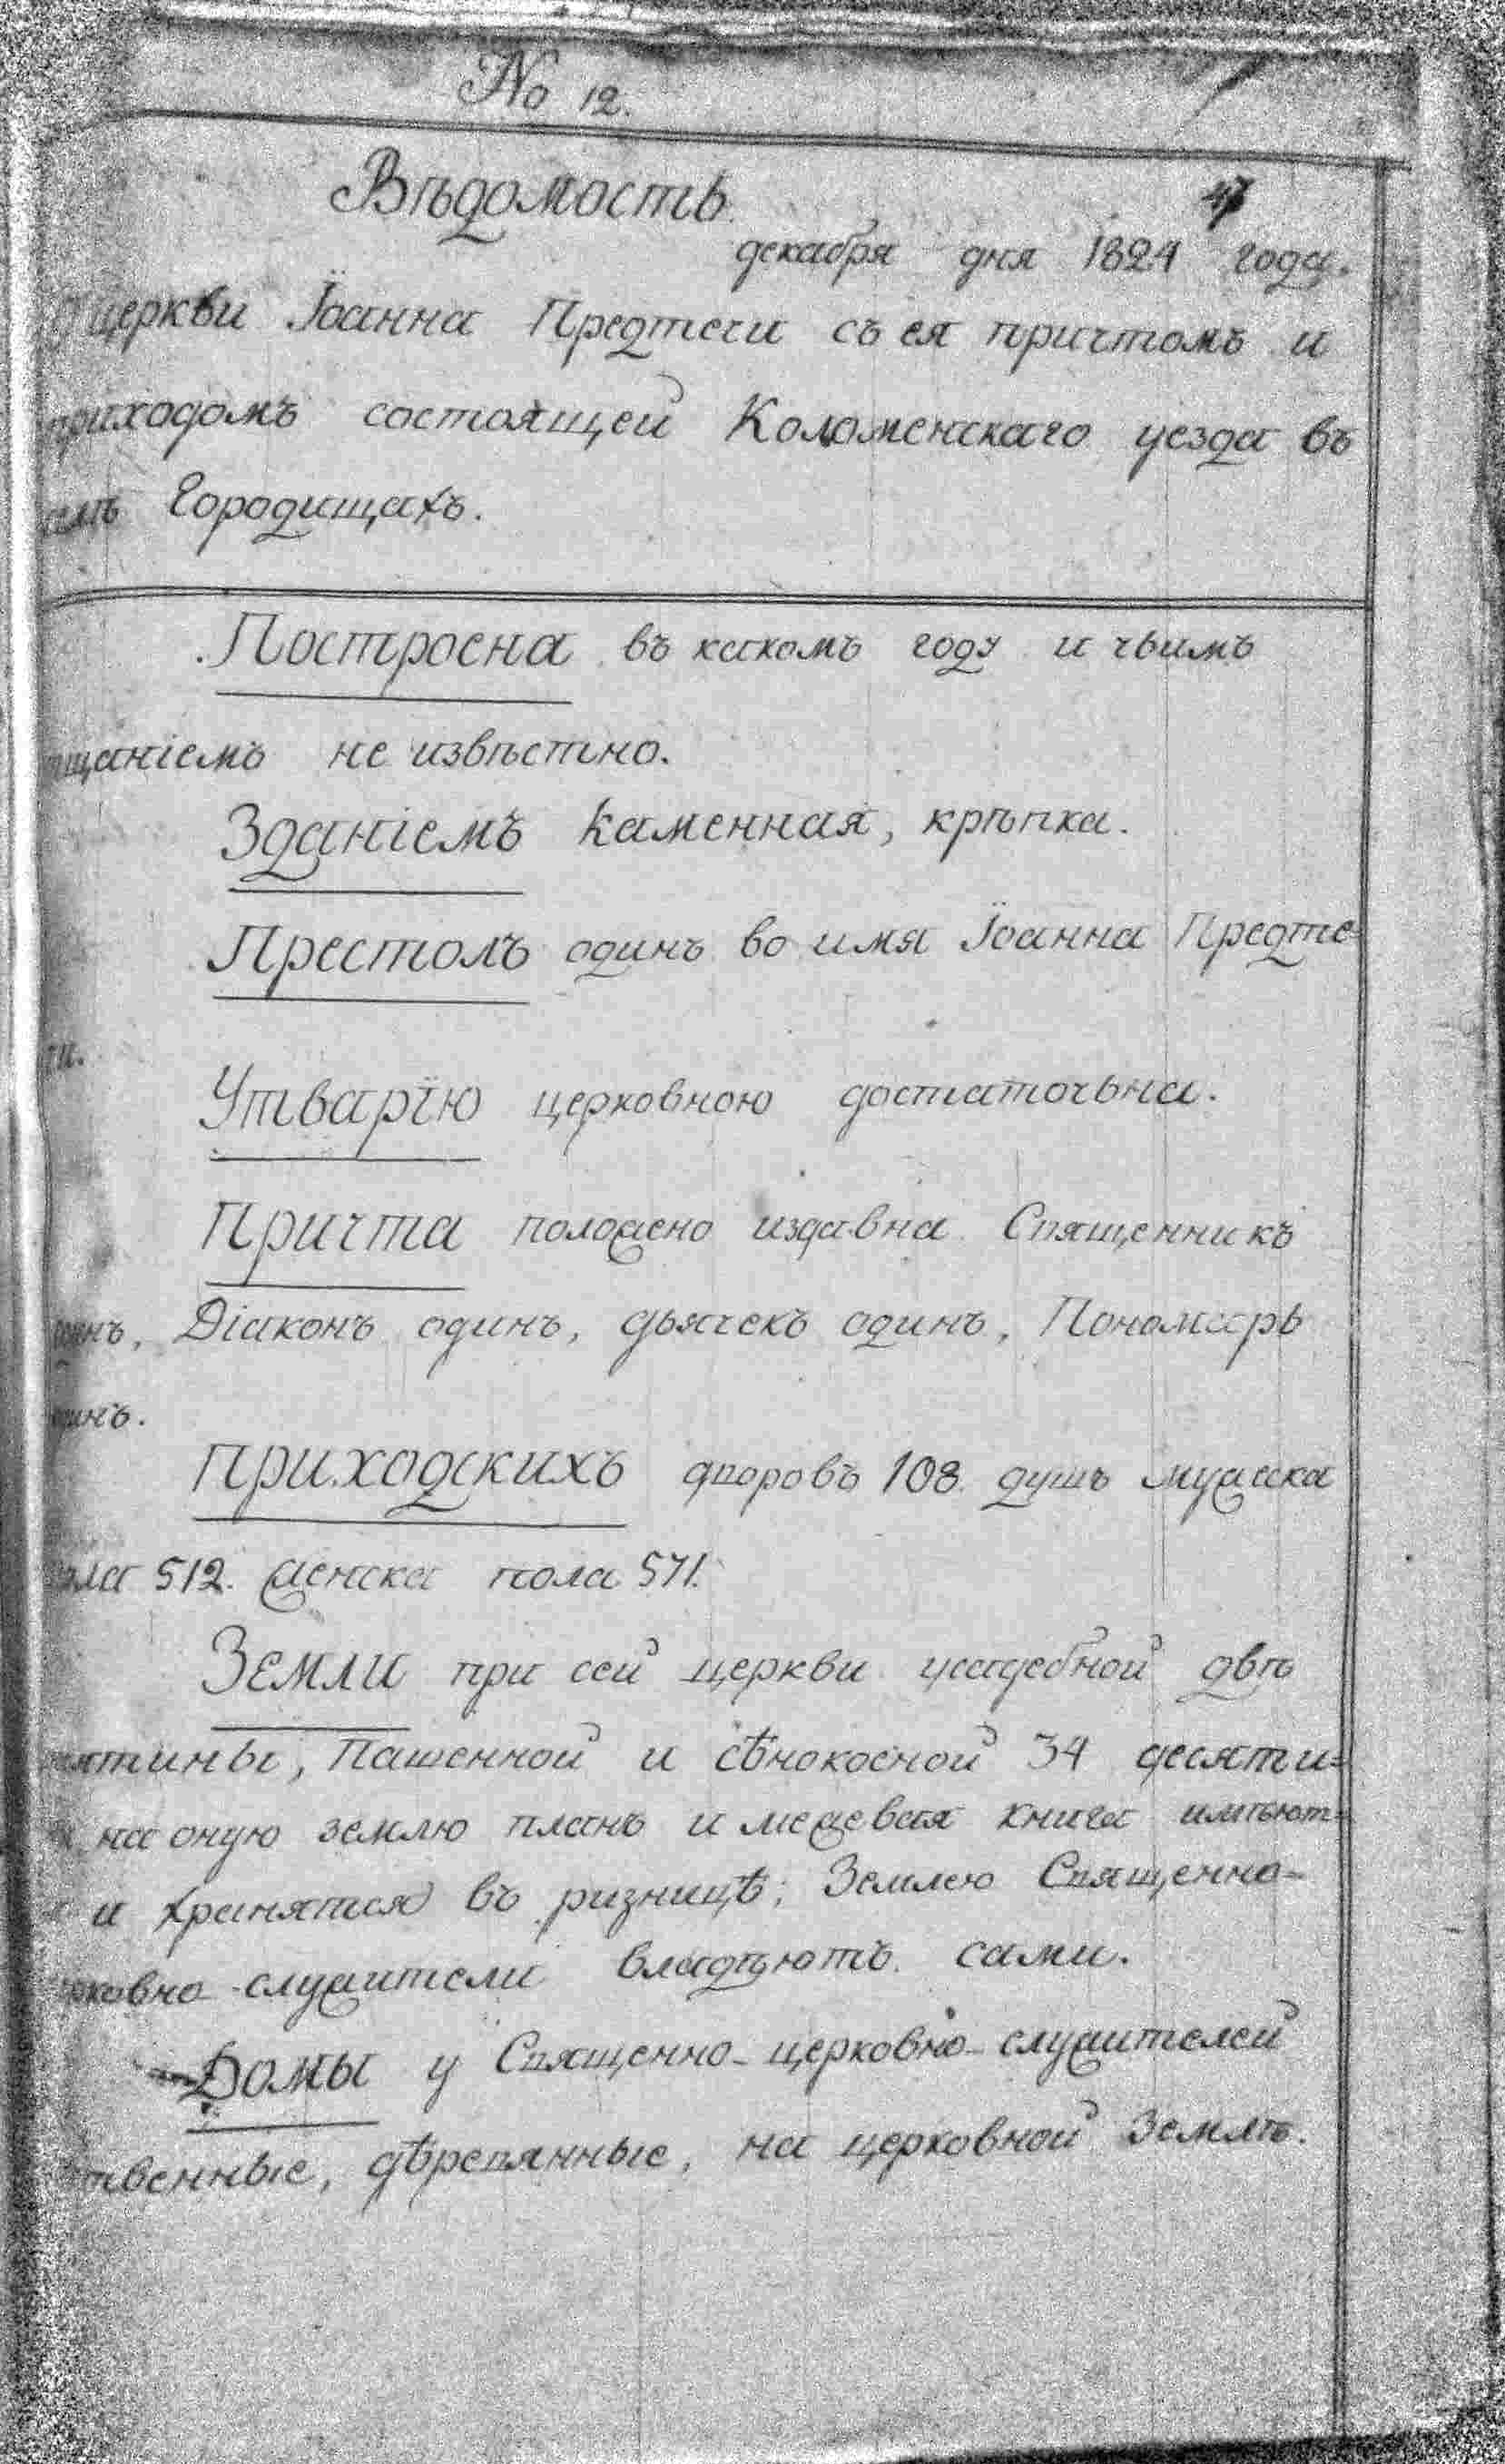 No 12.
Вѣдомость
47
декабря дня 1824 года.
церкви Іоанна Предтечи съ ея причтомъ и
приходомъ состоящей Коломенскаго уезда въ
Городищахъ.
Построена въ какомъ году и чьимъ
щаніемъ не извѣстно.
Зданіемъ каменная, крѣпка.
Престолъ одинъ во имя Іоанна Предте-
чи.
Утварїю церковною достаточьна.
Причта положено издавна Священникъ
динъ, Діаконъ одинъ, дьячекъ одинъ, Пономарь
динъ.
Приходскихъ дворовъ 108. душъ мужска
пола 512. женска пола 571.
Земли при сей церкви усадебной двѣ
сятины, Пашенной и сѣнокосной 34 десяти=
на оную землю планъ и межевая книга имѣют=
и хранятся въ ризницѣ; Землею Священно-
рковно-служители владѣютъ сами.
Домы у Священно-церковно-служителей
твенные, дѣревянные, на церковной Землѣ.